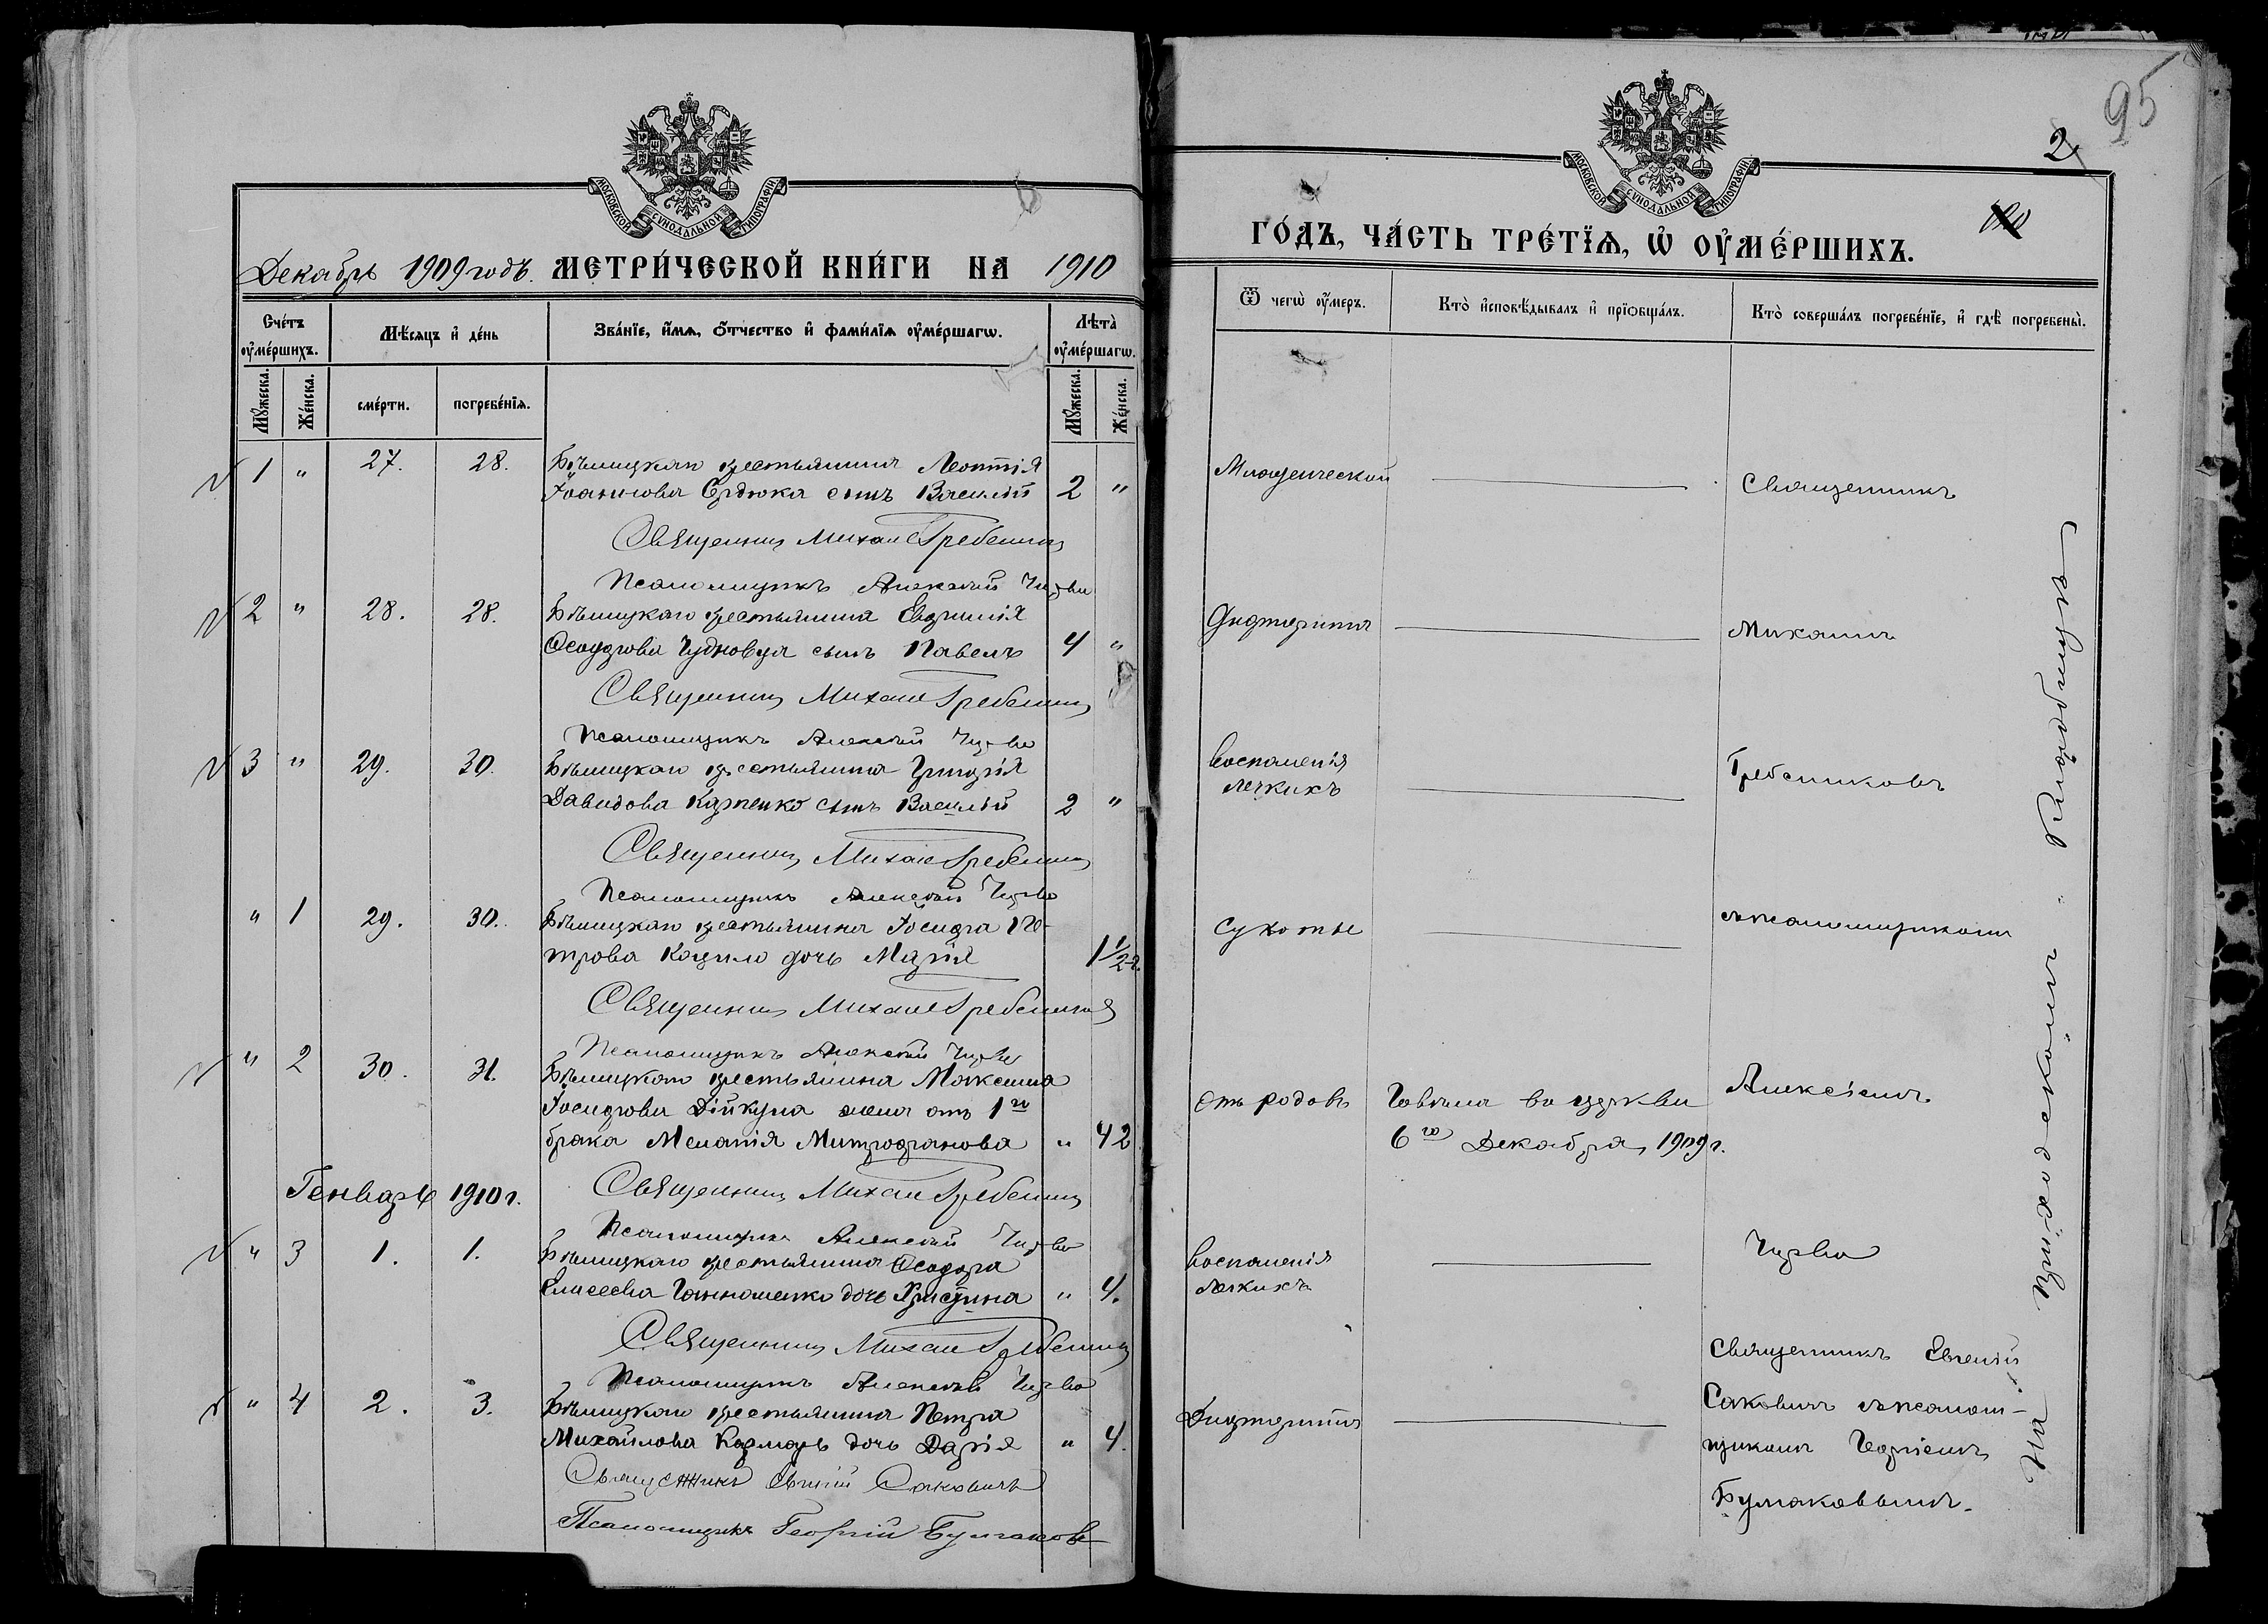 МОСКОВСКОЙ СѴНОДАЛЬНОЙ ТИПОГРАФІИ
Декабрь 1909 годъ. МЕТРИ́ЧЕСКОЙ КНИ́ГИ НА 1910
Сче́тъ оу҆ме́ршихъ.
Мѣ́сѧцъ и҆ де́нь
Зва́нїе, и҆́мѧ, ѻ҆́тчество и҆ фами́лїѧ оу҆ме́ршагѡ.
Лѣ̑та̀ оу҆ме́ршагѡ.
Мꙋ́жеска.
Же́нска.
сме́рти.
погребе́нїѧ.
Мꙋ́жеска.
Же́нска.
1 " 27. 28. Бѣлицкаго крестьянина Леонтія
Іоаннова Сердюка сынъ Василій 2 "
Священникъ Михаилъ Гребенник
Псаломщикъ Алексѣй
2 " 28. 28. Бѣлицкаго крестьянина Евфимія
Ѳеодорова Чудновца сынъ Павелъ 4 "
Священникъ Михаилъ Гребенник
Псаломщикъ Алексѣй
3 " 29. 30. Бѣлицкаго крестьянина Григорія
Давидова Карпенко сынъ Василій 2 "
Священникъ Михаилъ Гребенник
Псаломщикъ Алексѣй
" 1 29. 30. Бѣлицкаго крестьянина Іосифа Пе-
трова Кацило дочь Марія 1 1/2 г.
Священникъ Михаилъ Гребенник
Псаломщикъ Алексѣй
" 2 30. 31. Бѣлицкаго крестьянина Максима
Іосифова жена отъ 1го
брака Меланія Митрофанова " 42
Генварь 1910 г.
Священникъ Михаилъ Гребенник
Псаломщикъ Алексѣй
" 3 1. 1. Бѣлицкаго крестьянина Ѳеодора
Елисеева дочь Христина " 4.
Священникъ Михаилъ Гребенник
Псаломщикъ Алексѣй
" 4 2. 3. Бѣлицкаго крестьянина Петра
Михайлова дочь Дарія " 4.
Священникъ Евгеній Саковичъ
Псаломщикъ Георгій Булгаковъ
95
2
МОСКОВСКОЙ СѴНОДАЛЬНОЙ ТИПОГРАФІИ
ГО́ДЪ, ЧА́СТЬ ТРЕ́ТЇѦ, Ѡ҆ ОУ҆МЕ́РШИХЪ.
Ѿ чегѡ̀ оу҆́меръ.
Кто̀ и҆сповѣ́дывалъ и҆ прїѻбща́лъ.
Кто̀ соверша́лъ погребе́нїе, и҆ гдѣ̀ погребены̀.
Младенческой
Священникъ
Дифтерита
Михаилъ
воспаленія
легкихъ
Гребениковъ
Сухотъ
съ псаломщикомъ
отъ родовъ
Говѣла во церкви
6го Декабря 1909 г.
Алексѣемъ
воспаленія
легкихъ
Дифтерита
Священникъ Евгеній
Саковичъ съ псалом-
щикомъ Георгіемъ
Булгаковымъ.
На приходскомъ кладбищѣ